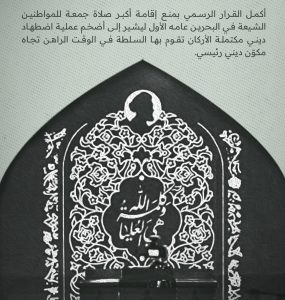 أكمل القرار الرسمي بمنع إقامة أكبر صلاة جمعة للمواطنين
الشيعة في البحرين عامه الأول ليشير إلى أضخم عملية اضطهاد
ديني مكتملة الأركان تقوم بها السلطة في الوقت الراهن تجاه
مكوّن ديني رئيسي.
وكلمة الله
هي العليا